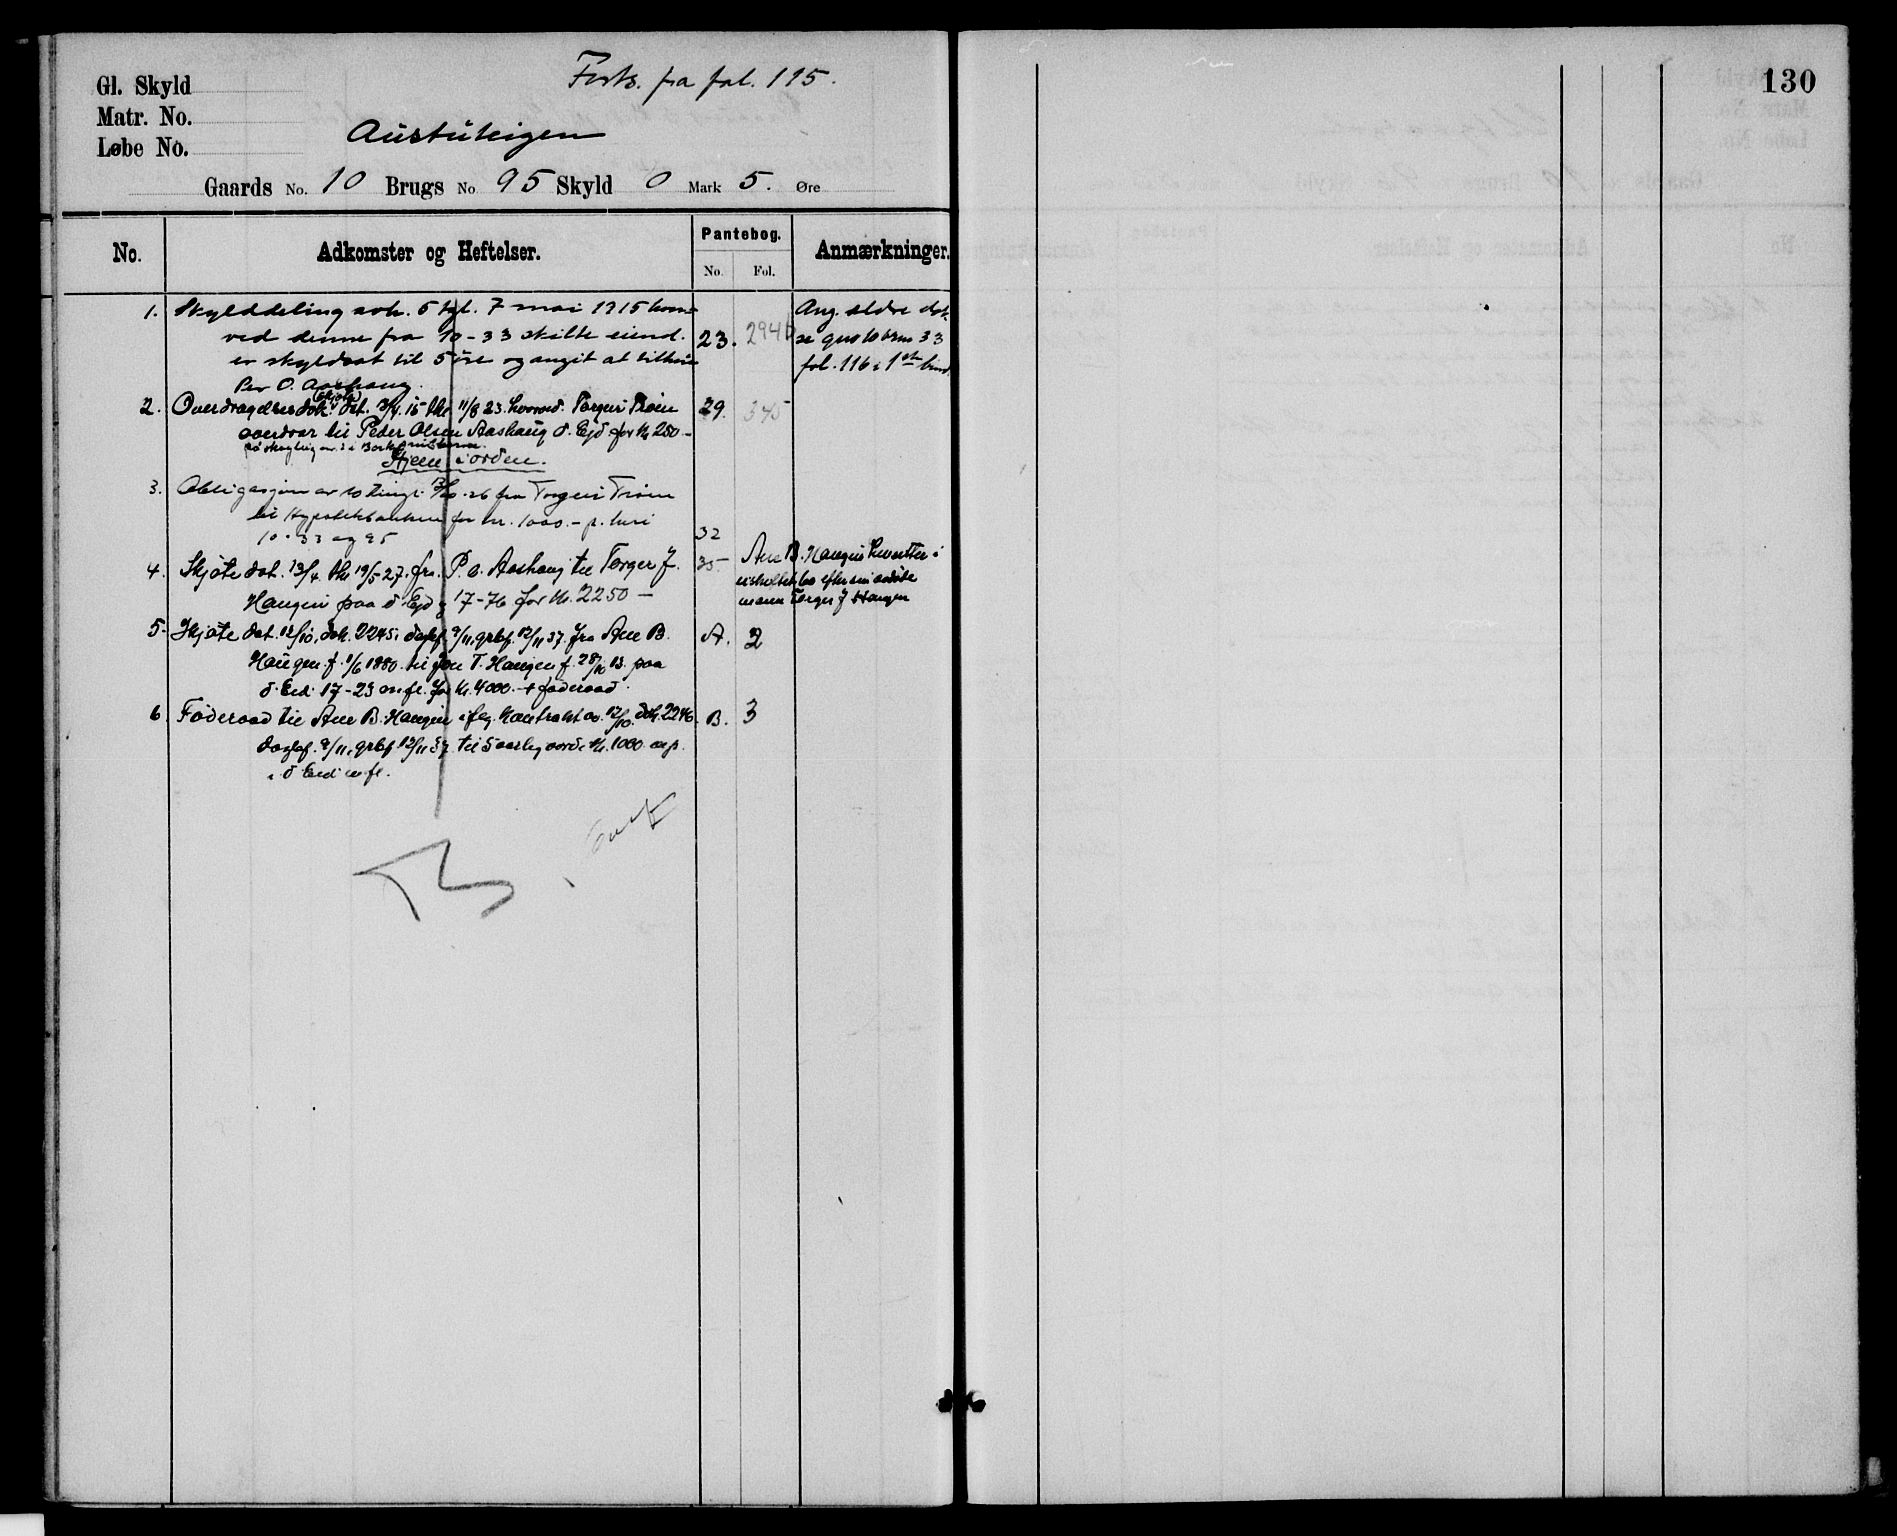 Forts. fra fol. 115.
130
Gl. Skyld
Matr. No.
Løbe No.
Austuteigen
Gaards No. 10 Brugs No 95 Skyld 0 Mark 5. Øre
No. Adkomster og Heftelser. Pantebog. Anmærkninger.
No. Fol.
1. Skylddeling avh. 5 tgl. 7 mai 1915 hvor-
ved denne fra 10-33 skilte eiend.
er skyldsat til 5 øre og angit at tilhøre
Per O. Aashaug.
23. 294b
Ang. ældre dok.
se gno 10 bno 33
fol. 116 i 1ste bind.
2. Overdragelsesdok. (skjøte) dat. 13/4.15 thl 11/8 23. hvorved Torgeir Trøen
overdrar til Peder Olsen Aashaug d. Ejd for Kr 250-
29. 345
Hjem i orden.
3. Obligasjon av 10 tingl. 13/10.26 fra Torgeir Trøen
til Hypotekbanken for kr. 1000.- p. heri
10-33 og 95
32
4. Skjøte dat. 13/4 thl 19/5 27. fra P. O. Aashaug til Torger J.
Haugen paa d Ejd og 17-76 for Kr. 2250-
35
Ane B. Haugen hensitter i
uskiftet bo efter sin avdøde
mann Torger J Haugen
5. Skjøte dat. 12/10, dok. 2245 i dagbf. 9/11, grbf. 12/11 37. fra Ane B.
Haugen f. 1/6 1880. til Jon T. Haugen f. 28/10 13. paa
d. Eid. 17-23 m fl. for Kr. 4000.- + føderaad.
A. 2
6. Føderaad til Ane B. Haugen ifølg. kontrakt av 12/10. dok. 2246
dagbf. 9/11, grbf 12/11 37. til 5 aarlig værdi Kr. 1000. m p.
i d Eid m fl.
B. 3